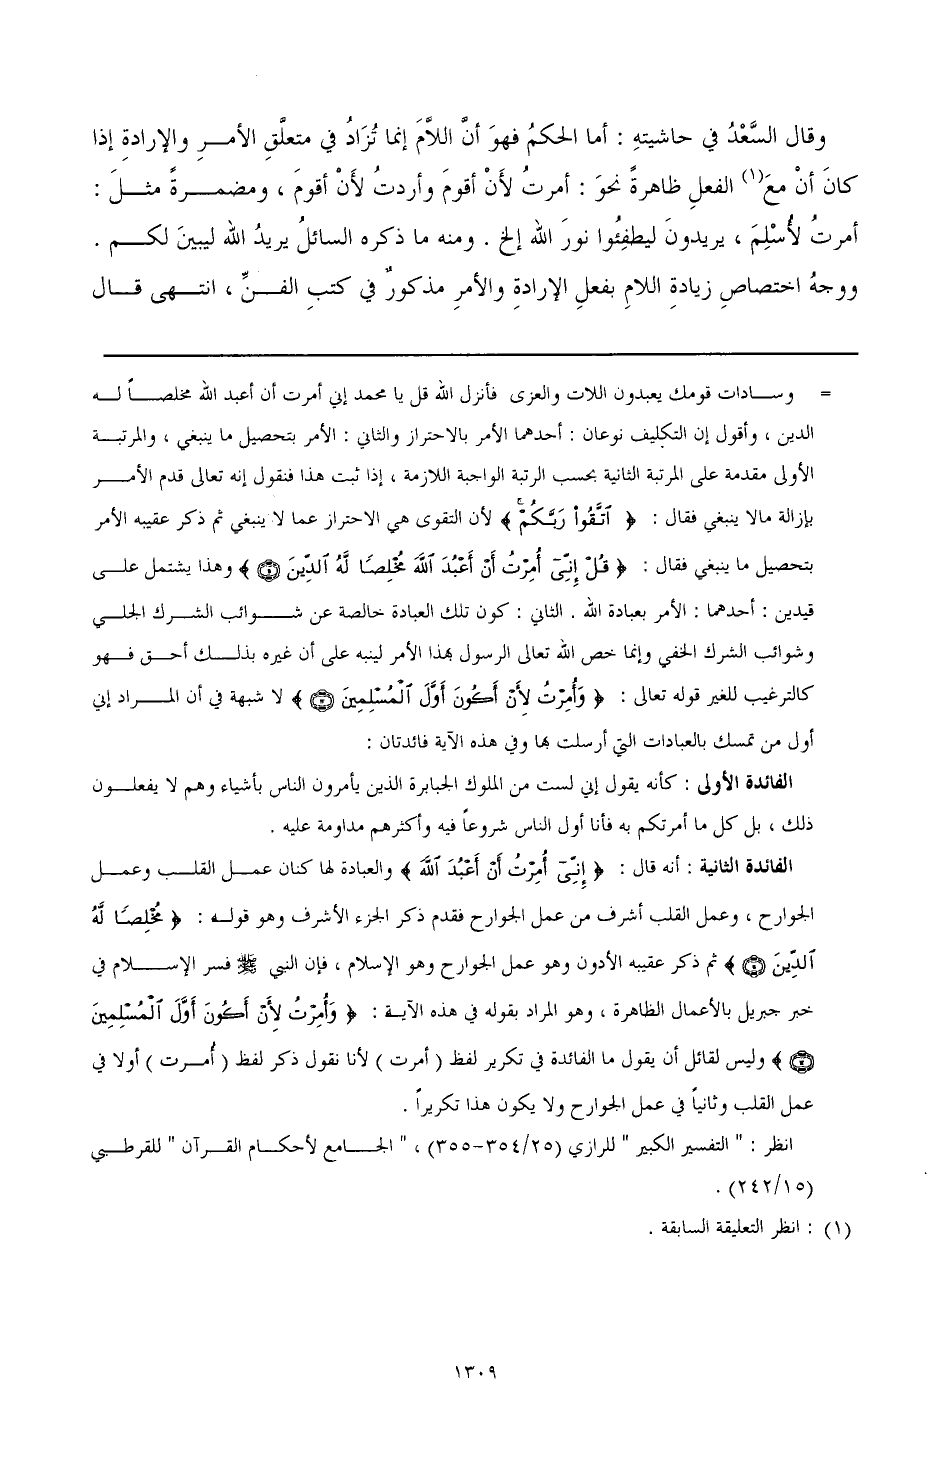 وقال السَّعْدُ في حاشيتهِ : أما الحكمُ فهوَ أنَّ اللاَّمَ إنما تُزَادُ في متعلَّقِ الأمـرِ والإرادةِ إذا
كانَ أنْ معَ(١) الفعلِ ظاهرةً نحوَ : أمرتُ لأنْ أقومَ وأردتُ لأنْ أقومَ ، ومضمـرةً مثـلَ :
أمرتُ لأُسْلِمَ ، يريدونَ ليطفِئُوا نورَ الله إلخ . ومنه ما ذكره السائلُ يريدُ الله ليبينَ لكـم .
ووجهُ اختصاصِ زيادةِ اللامِ بفعلِ الإرادةِ والأمرِ مذكورٌ في كتبِ الفـنِّ ، انتـهى قـال
= وسـادات قومك يعبدون اللات والعزى فأنزل الله قل يا محمد إني أمرت أن أعبد الله مخلصـاً لـه
الدين ، وأقول إن التكليف نوعان : أحدهما الأمر بالاحتراز والثاني : الأمر بتحصيل ما ينبغي ، والمرتبـة
الأولى مقدمة على المرتبة الثانية بحسب الرتبة الواجبة اللازمة ، إذا ثبت هذا فنقول إنه تعالى قدم الأمـر
بإزالة مالا ينبغي فقال : ﴿ ٱتَّقُوا۟ رَبَّكُمْ ۚ ﴾ لأن التقوى هي الاحتراز عما لا ينبغي ثم ذكر عقيبه الأمر
بتحصيل ما ينبغي فقال : ﴿ قُلْ إِنِّىٓ أُمِرْتُ أَنْ أَعْبُدَ ٱللَّهَ مُخْلِصًا لَّهُ ٱلدِّينَ ﴾ وهذا يشتمل علـى
قيدين : أحدهما : الأمر بعبادة الله . الثاني : كون تلك العبادة خالصة عن شـوائب الشرك الجلي
وشوائب الشرك الخفي وإنما خص الله تعالى الرسول بهذا الأمر لينبه على أن غيره بذلـك أحـق فـهو
كالترغيب للغير قوله تعالى : ﴿ وَأُمِرْتُ لِأَنْ أَكُونَ أَوَّلَ ٱلْمُسْلِمِينَ ﴾ لا شبهة في أن المـراد إني
أول من تمسك بالعبادات التي أرسلت بها وفي هذه الآية فائدتان :
الفائدة الأولى : كأنه يقول إني لست من الملوك الجبابرة الذين يأمرون الناس بأشياء وهم لا يفعلـون
ذلك ، بل كل ما أمرتكم به فأنا أول الناس شروعاً فيه وأكثرهم مداومة عليه .
الفائدة الثانية : أنه قال : ﴿ إِنِّىٓ أُمِرْتُ أَنْ أَعْبُدَ ٱللَّهَ ﴾ والعبادة لها كنان عمـل القلـب وعمـل
الجوارح ، وعمل القلب أشرف من عمل الجوارح فقدم ذكر الجزء الأشرف وهو قولـه : ﴿ مُخْلِصًا لَّهُ
ٱلدِّينَ ﴾ ثم ذكر عقيبه الأدون وهو عمل الجوارح وهو الإسلام ، فإن النبي ﷺ فسر الإسـلام في
خبر جبريل بالأعمال الظاهرة ، وهو المراد بقوله في هذه الآيـة : ﴿ وَأُمِرْتُ لِأَنْ أَكُونَ أَوَّلَ ٱلْمُسْلِمِينَ
﴾ وليس لقائل أن يقول ما الفائدة في تكرير لفظ ( أمرت ) لأنا نقول ذكر لفظ ( أُمـرت ) أولا في
عمل القلب وثانياً في عمل الجوارح ولا يكون هذا تكريراً .
انظر : " التفسير الكبير " للرازي (٢٥/٣٥٤-٣٥٥) ، " الجـامع لأحكـام القـرآن " للقرطـبي
(١٥/٢٤٢) .
(١) : انظر التعليقة السابقة .
١٣٠٩